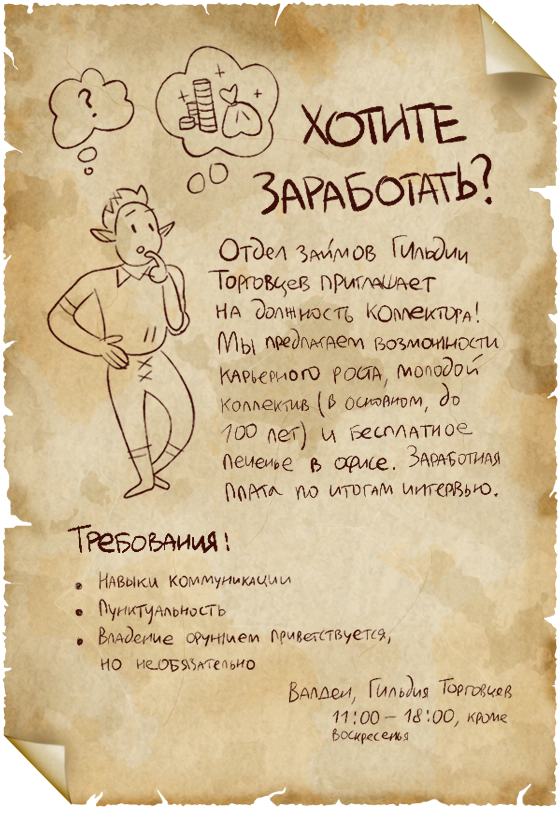 ?
ХОТИТЕ
ЗАРАБОТАТЬ?
Отдел займов Гильдии
Торговцев приглашает
на должность коллектора!
Мы предлагаем возможности
карьерного роста, молодой
коллектив (в основном, до
100 лет) и бесплатное
печенье в офисе. Заработная
плата по итогам интервью.
Требования:
• Навыки коммуникации
• Пунктуальность
• Владение оружием приветствуется,
но необязательно
Валден, Гильдия Торговцев
11:00 – 18:00, кроме
воскресенья